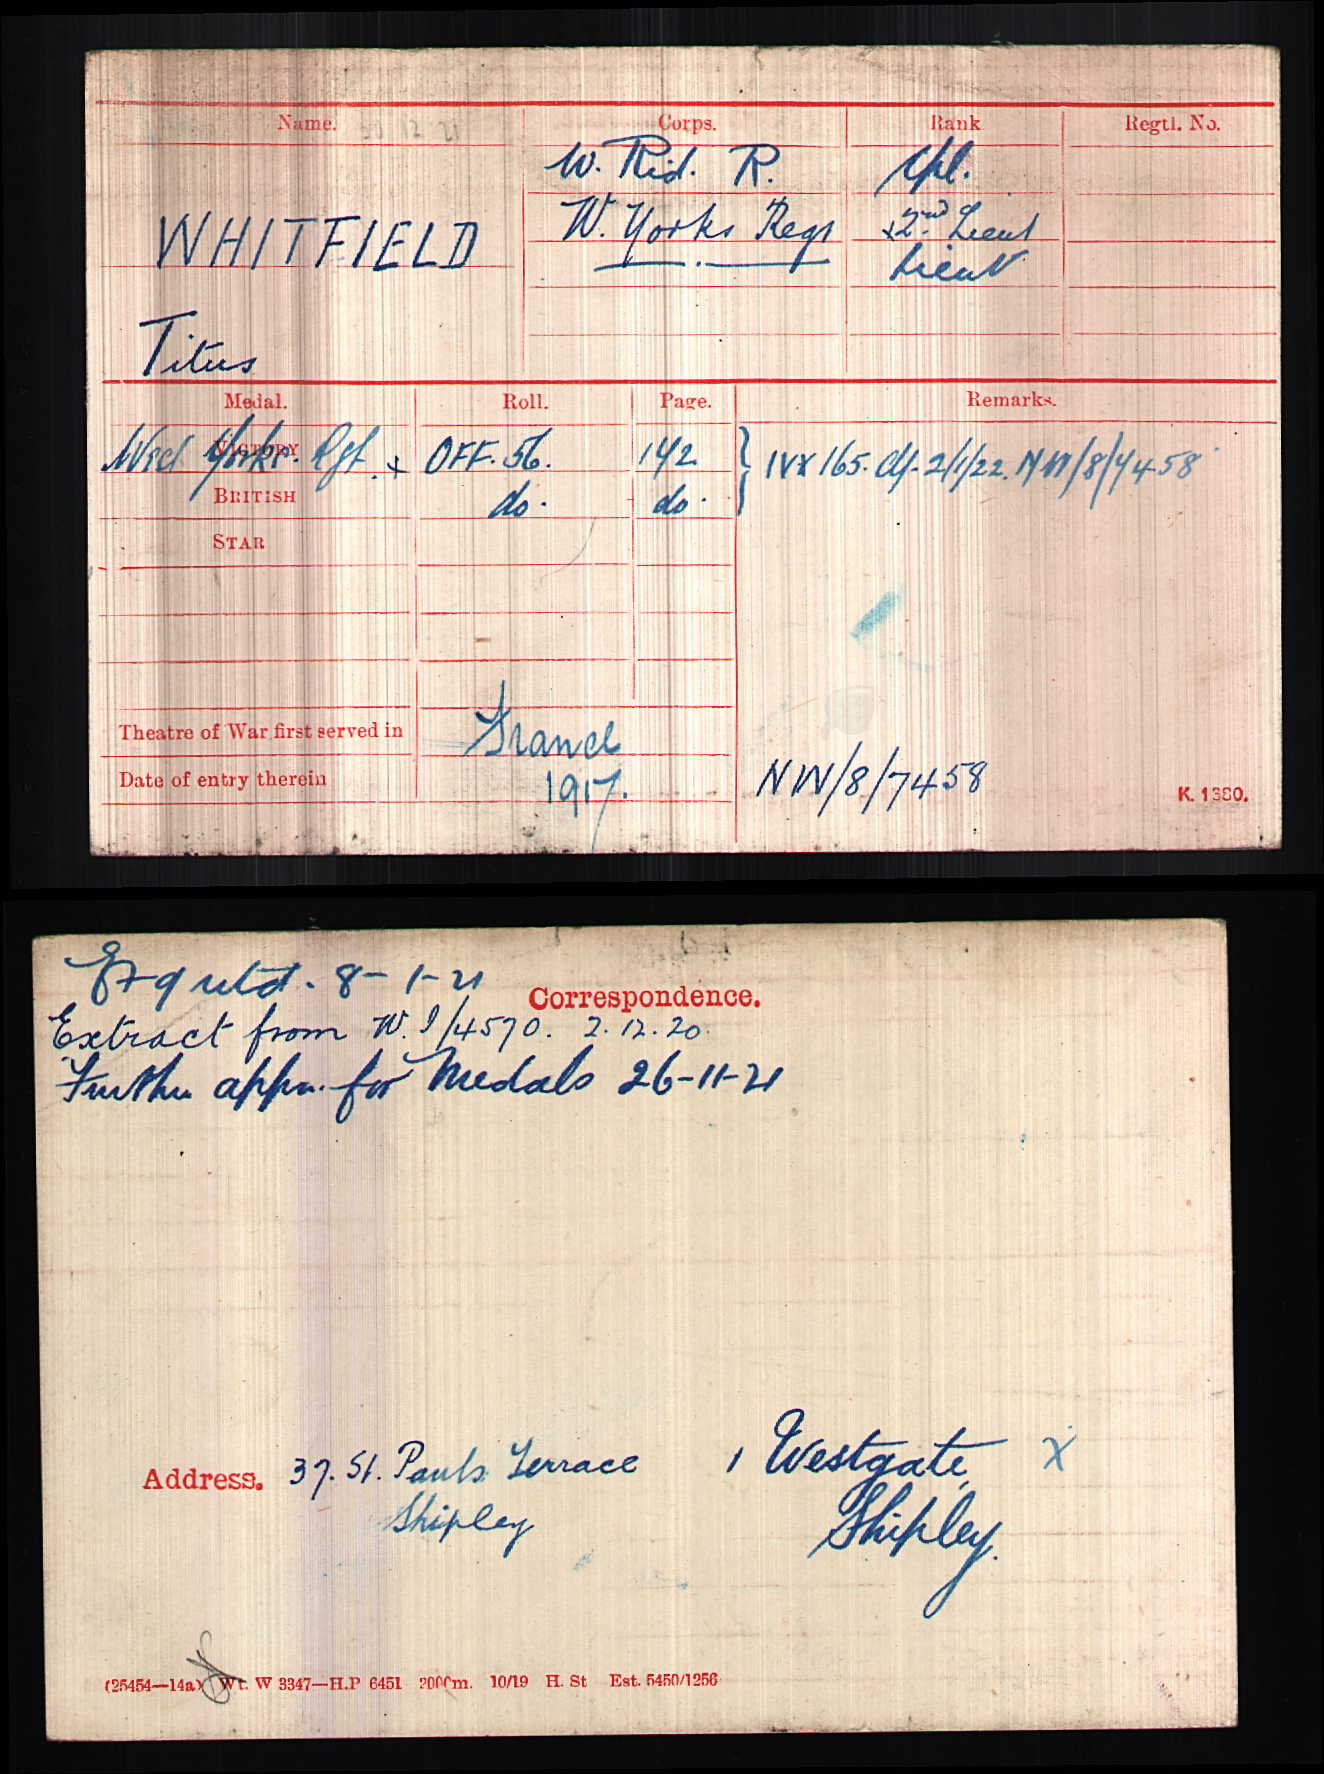 Name. Corps. Rank Regtl. No.
W. Rid. R. Cpl.
WHITFIELD W. Yorks Regt 2nd Lieut
Lieut
Titus
Medal. Roll. Page. Remarks.
VICTORY
West Yorks. Rgt. OFF. 56. 142 IVX 165. 2/1/22. NW/8/7458
BRITISH do. do.
STAR
Theatre of War first served in France
Date of entry therein 1917. NW/8/7458
K. 1380.
8-1-21
Correspondence.
Extract from 4570. 2.12.20.
Further appn. for Medals 26-11-21
Address. 37. St. Pauls Terrace 1 Westgate, X
Shipley Shipley.
(25454—14a) Wt. W 3347—H.P 6451 2000m. 10/19 H. St Est. 5450/1256